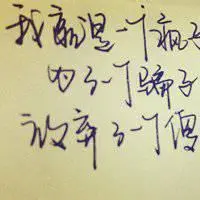 我就是一个疯子
为了一个骗子
放弃了一个傻